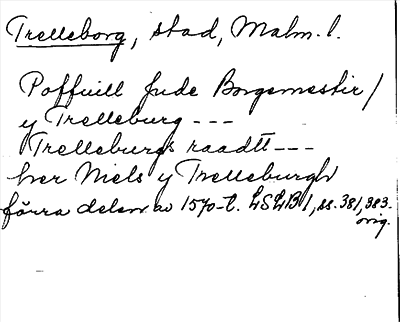 Trelleborg, stad, Malm. l.
Poffuill Jude Borgemestir /
y Trelleburg ---
Trelleburgs raadtt ---
her Niels y Trelleburgh
förra delen av 1570-t. LSLB 1, ss. 381, 383.
orig.